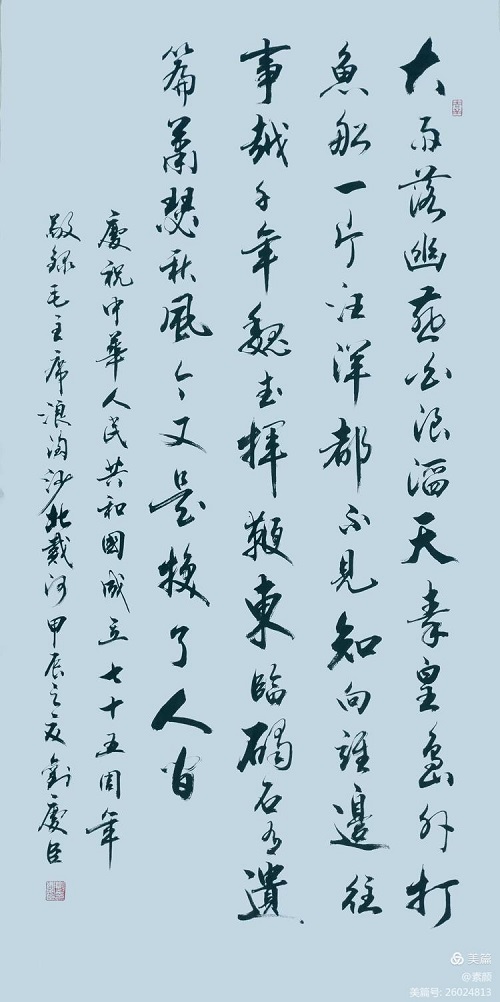 大雨落幽燕白浪滔天秦皇島外打
魚船一片汪洋都不見知向誰邊往
事越千年魏武揮鞭東臨碣石有遺
篇蕭瑟秋風今又是換了人间
慶祝中華人民共和國成立七十五周年
敬録毛主席浪淘沙北戴河甲辰之夏劉慶臣
美篇
@素颜
美篇号: 26024813